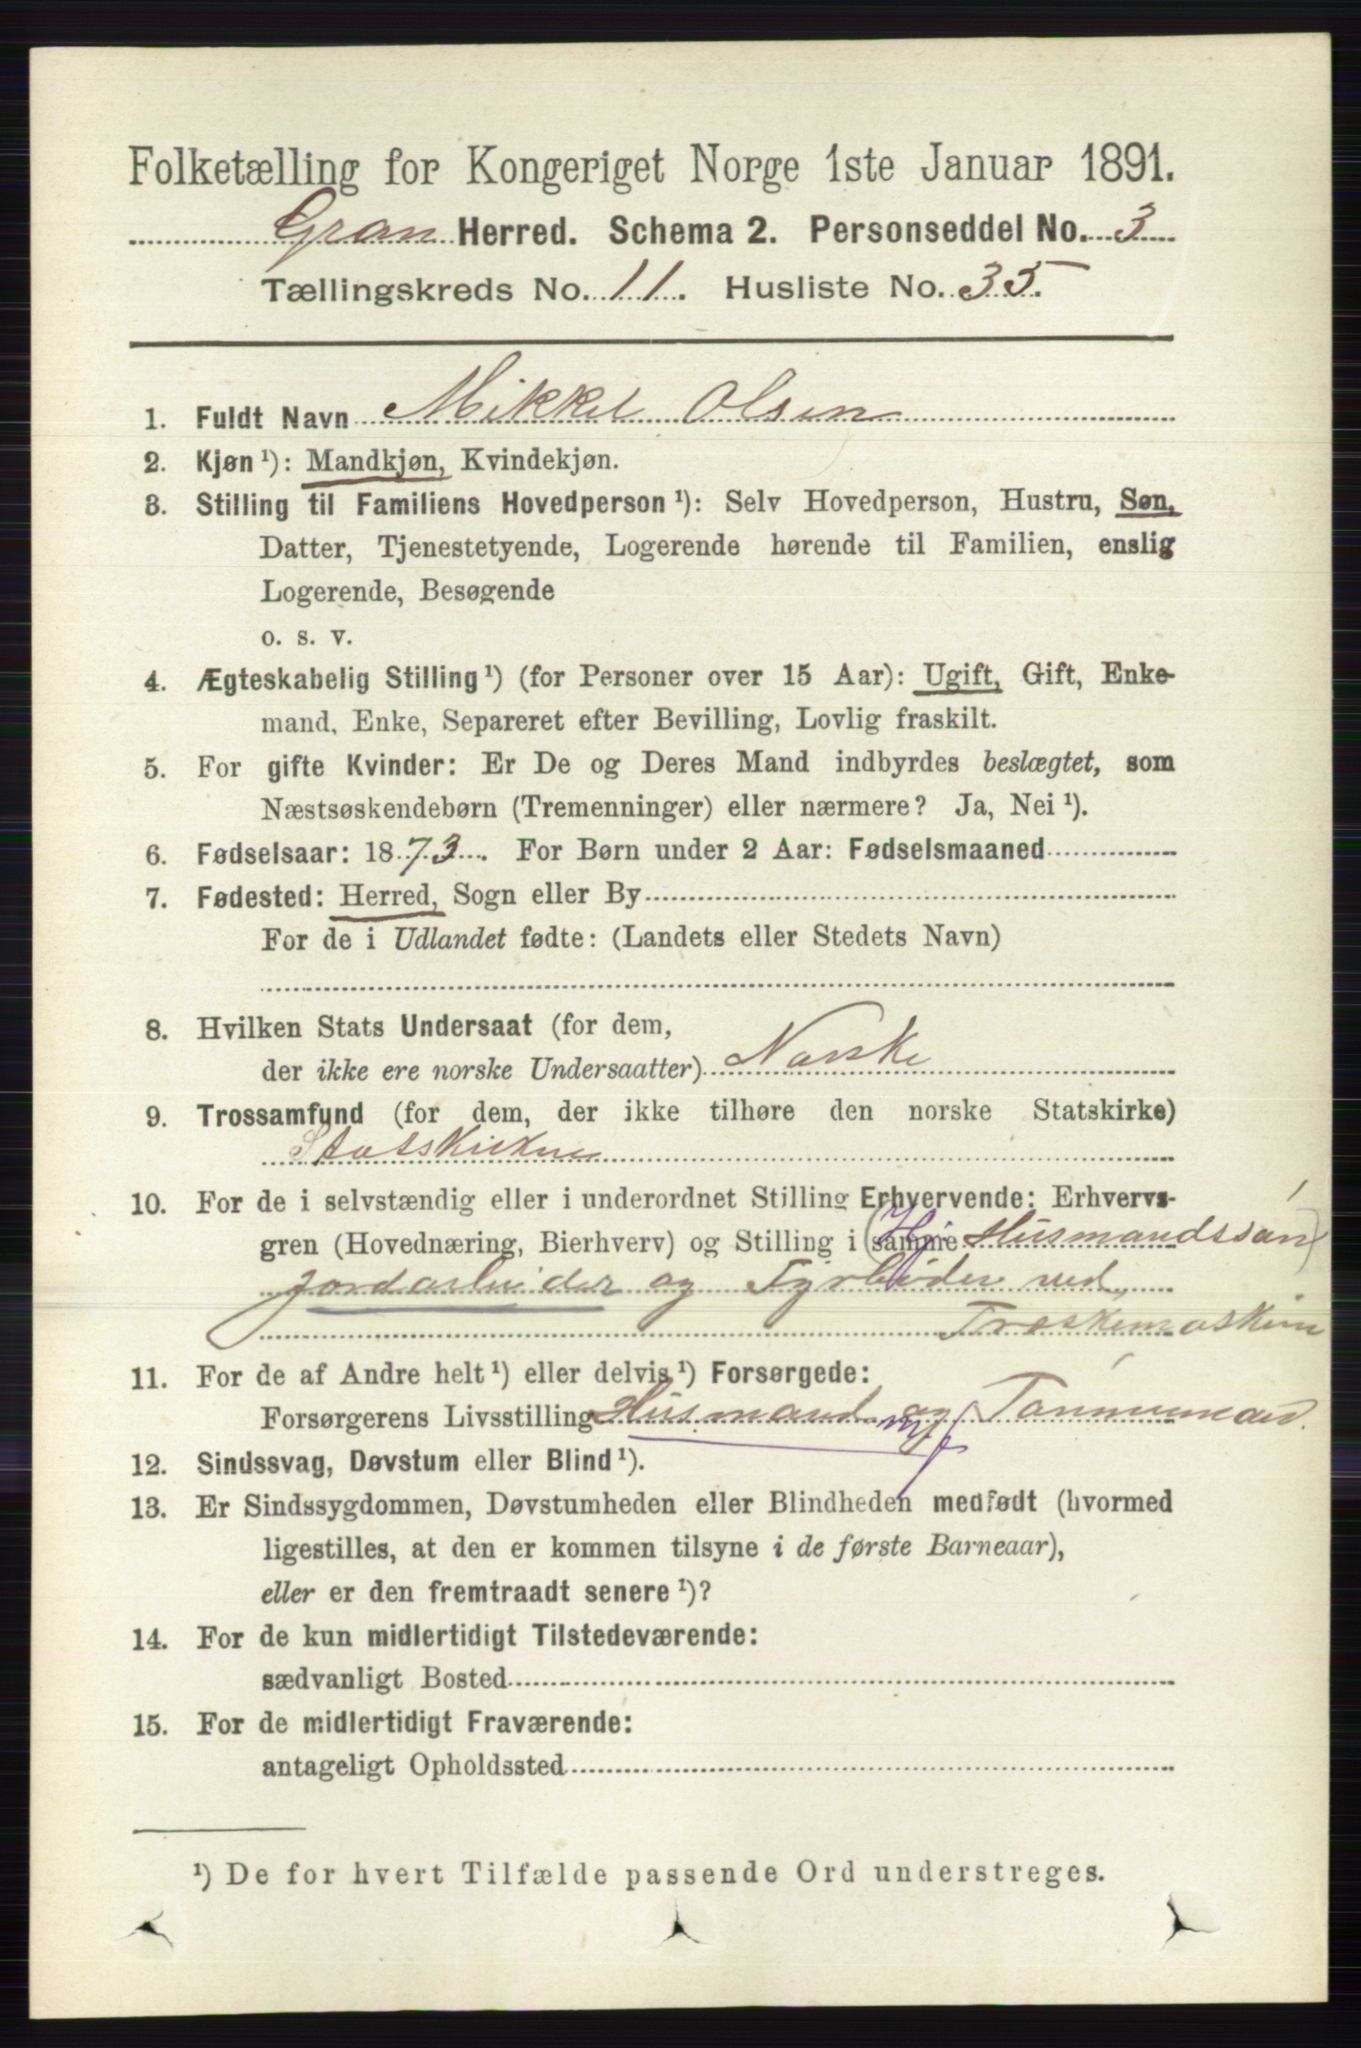 Folketælling for Kongeriget Norge 1ste Januar 1891.
Gran Herred. Schema 2. Personseddel No. 3
Tællingskreds No. 11. Husliste No. 35.
1. Fuldt Navn Mikkel Olsen
2. Kjøn ¹): Mandkjøn, Kvindekjøn.
3. Stilling til Familiens Hovedperson ¹): Selv Hovedperson, Hustru, Søn,
Datter, Tjenestetyende, Logerende hørende til Familien, enslig
Logerende, Besøgende
o. s. v.
4. Ægteskabelig Stilling ¹) (for Personer over 15 Aar): Ugift, Gift, Enke-
mand, Enke, Separeret efter Bevilling, Lovlig fraskilt.
5. For gifte Kvinder: Er De og Deres Mand indbyrdes beslægtet, som
Næstsøskendebørn (Tremenninger) eller nærmere? Ja, Nei ¹).
6. Fødselsaar: 1873. For Børn under 2 Aar: Fødselsmaaned
7. Fødested: Herred, Sogn eller By
For de i Udlandet fødte: (Landets eller Stedets Navn)
8. Hvilken Stats Undersaat (for dem,
der ikke ere norske Undersaatter) Norske
9. Trossamfund (for dem, der ikke tilhøre den norske Statskirke)
Statskirken
10. For de i selvstændig eller i underordnet Stilling Erhvervende: Erhvervs-
gren (Hovednæring, Bierhverv) og Stilling i samme (Husmandssøn)
Jordarbeider og Fyrbøder ved
Træskemaskin
11. For de af Andre helt ¹) eller delvis ¹) Forsørgede:
Forsørgerens Livsstilling Husmand og Tømmermand.
12. Sindssvag, Døvstum eller Blind ¹).
13. Er Sindssygdommen, Døvstumheden eller Blindheden medfødt (hvormed
ligestilles, at den er kommen tilsyne i de første Barneaar),
eller er den fremtraadt senere ¹)?
14. For de kun midlertidigt Tilstedeværende:
sædvanligt Bosted
15. For de midlertidigt Fraværende:
antageligt Opholdssted
¹) De for hvert Tilfælde passende Ord understreges.